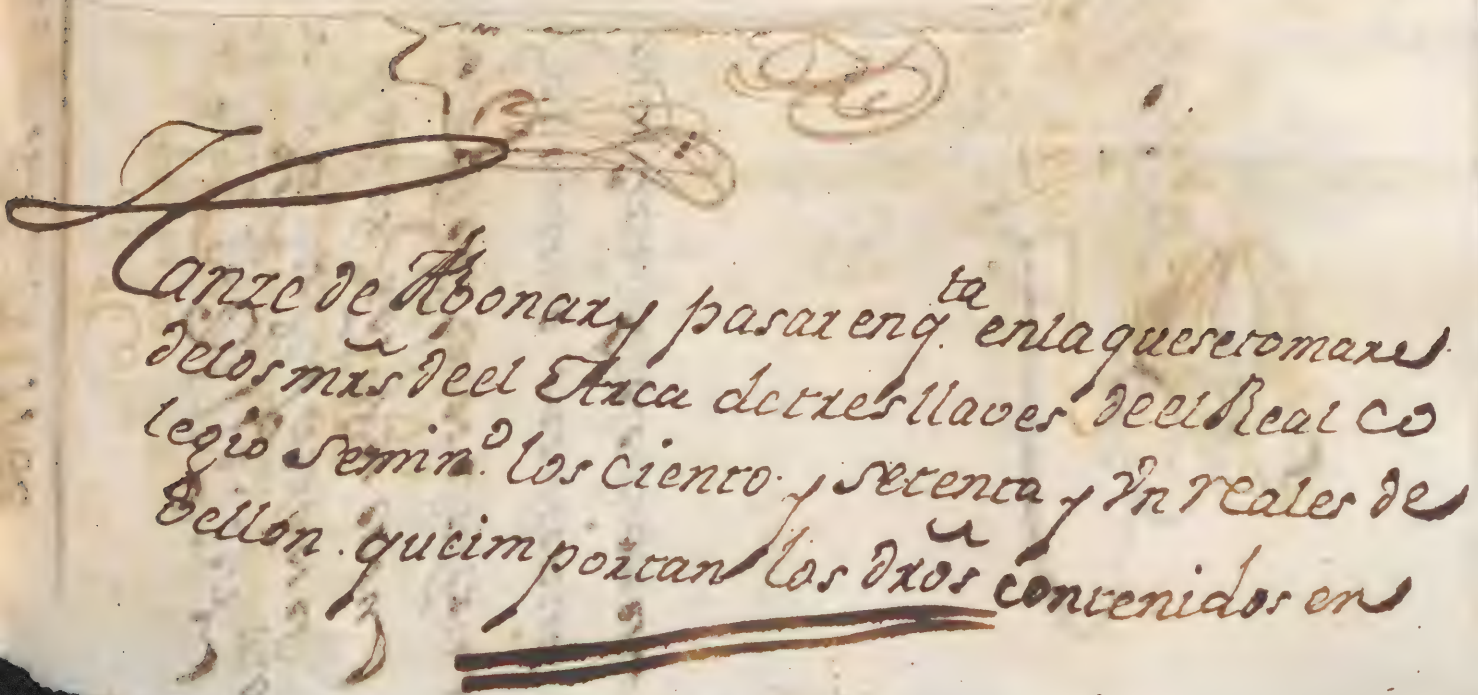 Hanze de Abonar y pasar en q.ta en la que se tomare
de los mrs̃ de el Arca de tres llaves de el Real Co
legio Semin.o los Ciento y setenta y Vn reales de
Vellon que importan los dr̃os contenidos en